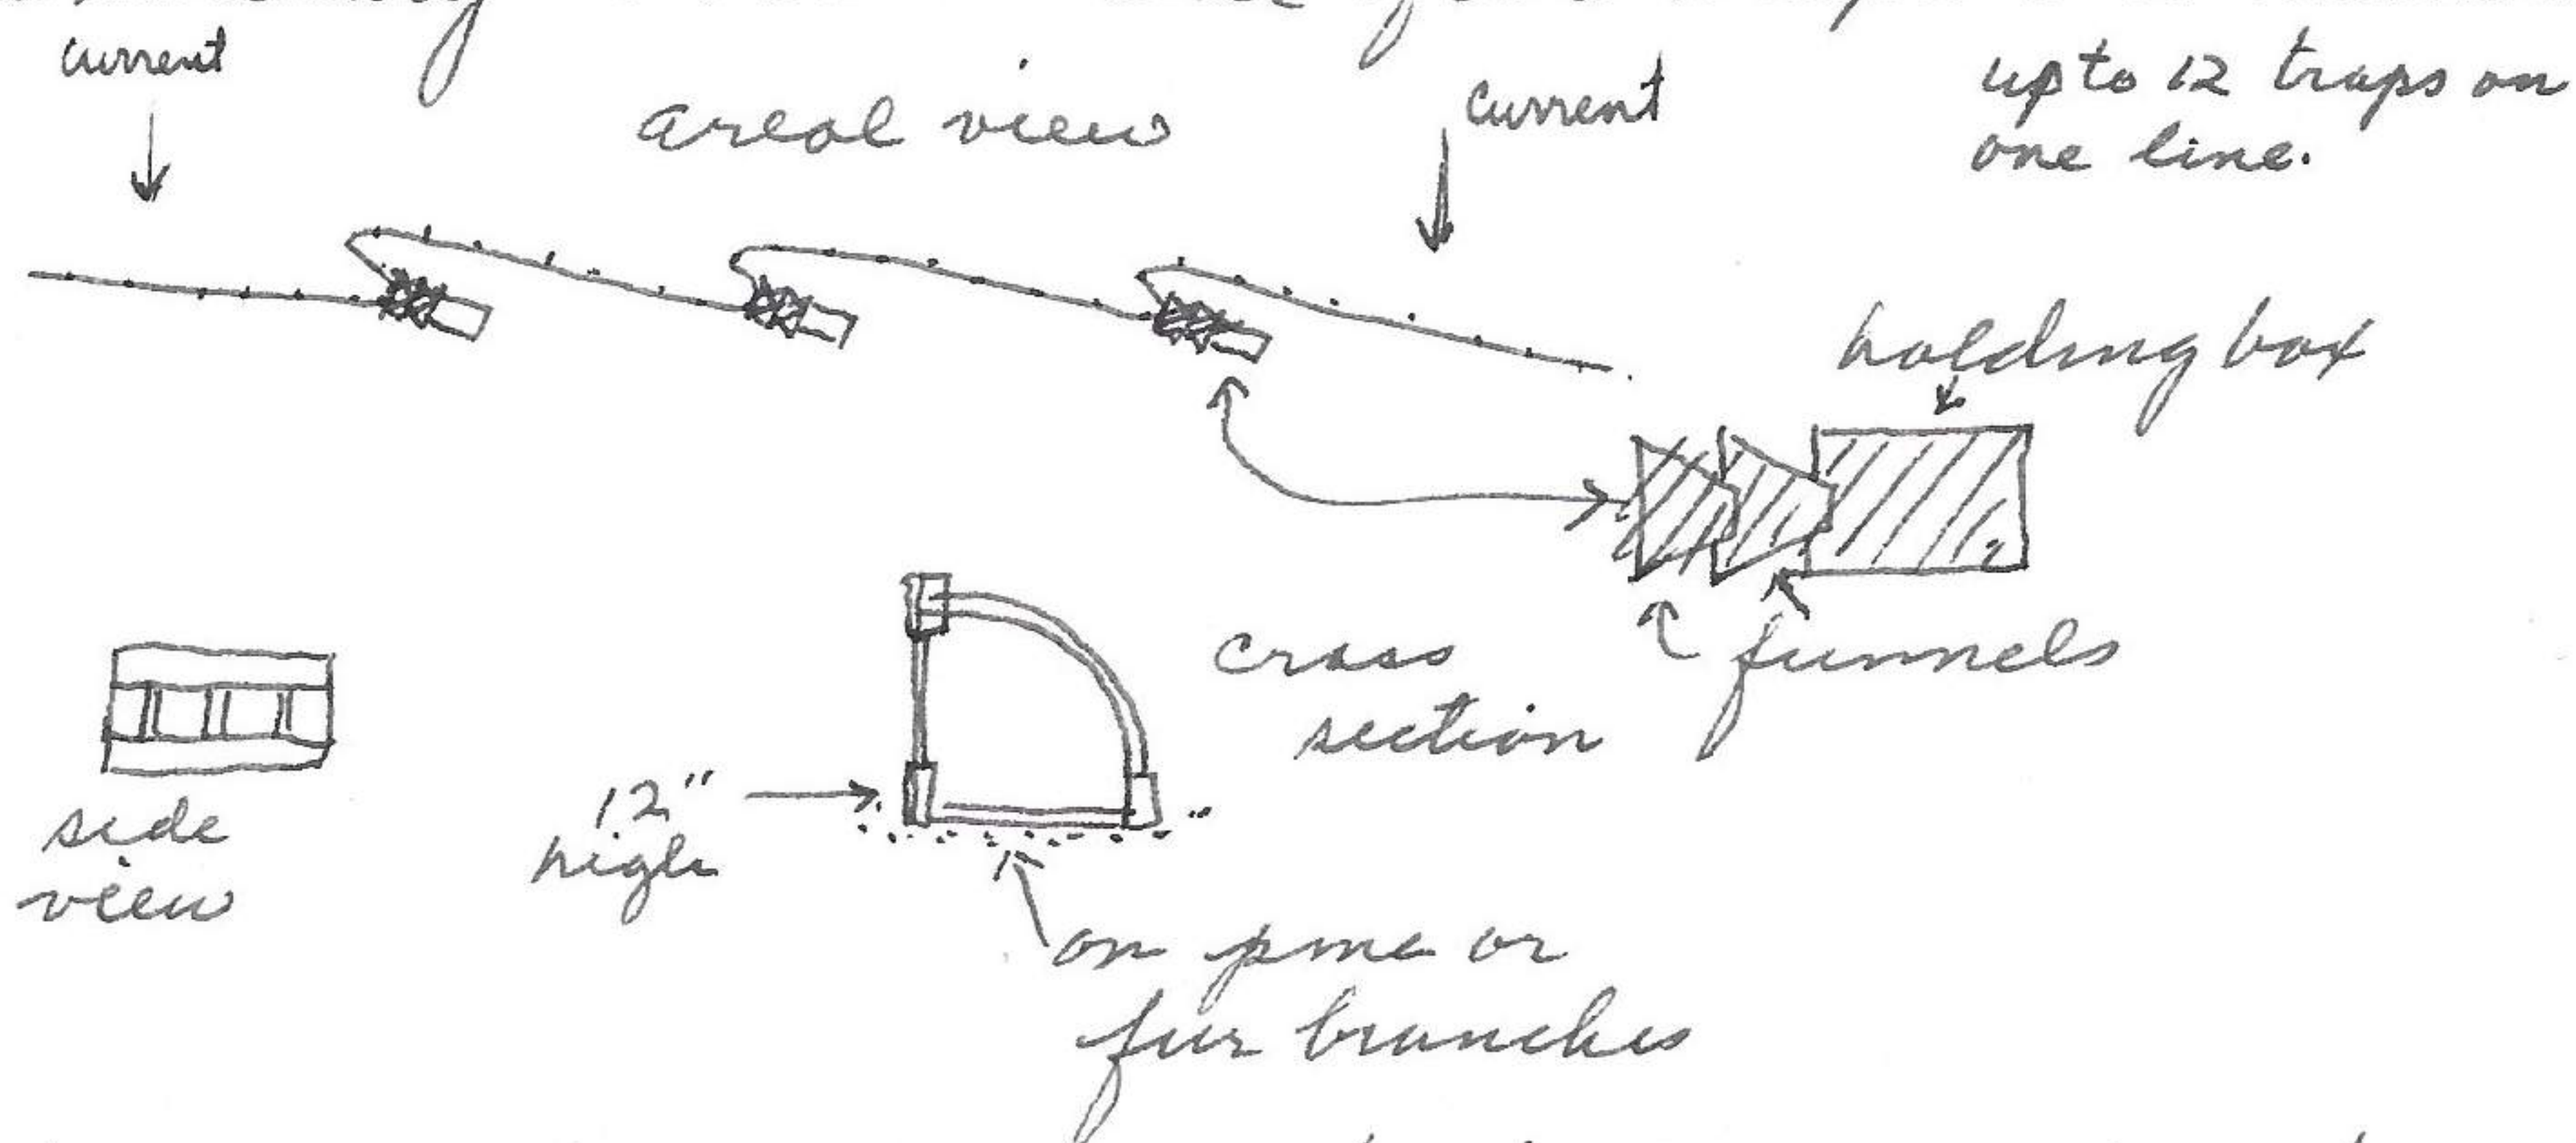 current
areal view
current
up to 12 traps on
one line.
holding box
funnels
cross
section
side
view
12"
high
on pine or
fur branches